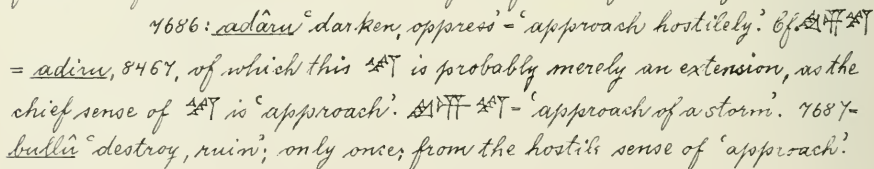 7686: adâru ‘darken, oppress’ – ‘approach hostilely’. Cf.
= adiru, 8467, of which this is probably merely an extension, as the
chief sense of is ‘approach’. – ‘approach of a storm’. 7687–
bullû ‘destroy, ruin’; only once; from the hostile sense of ‘approach’.